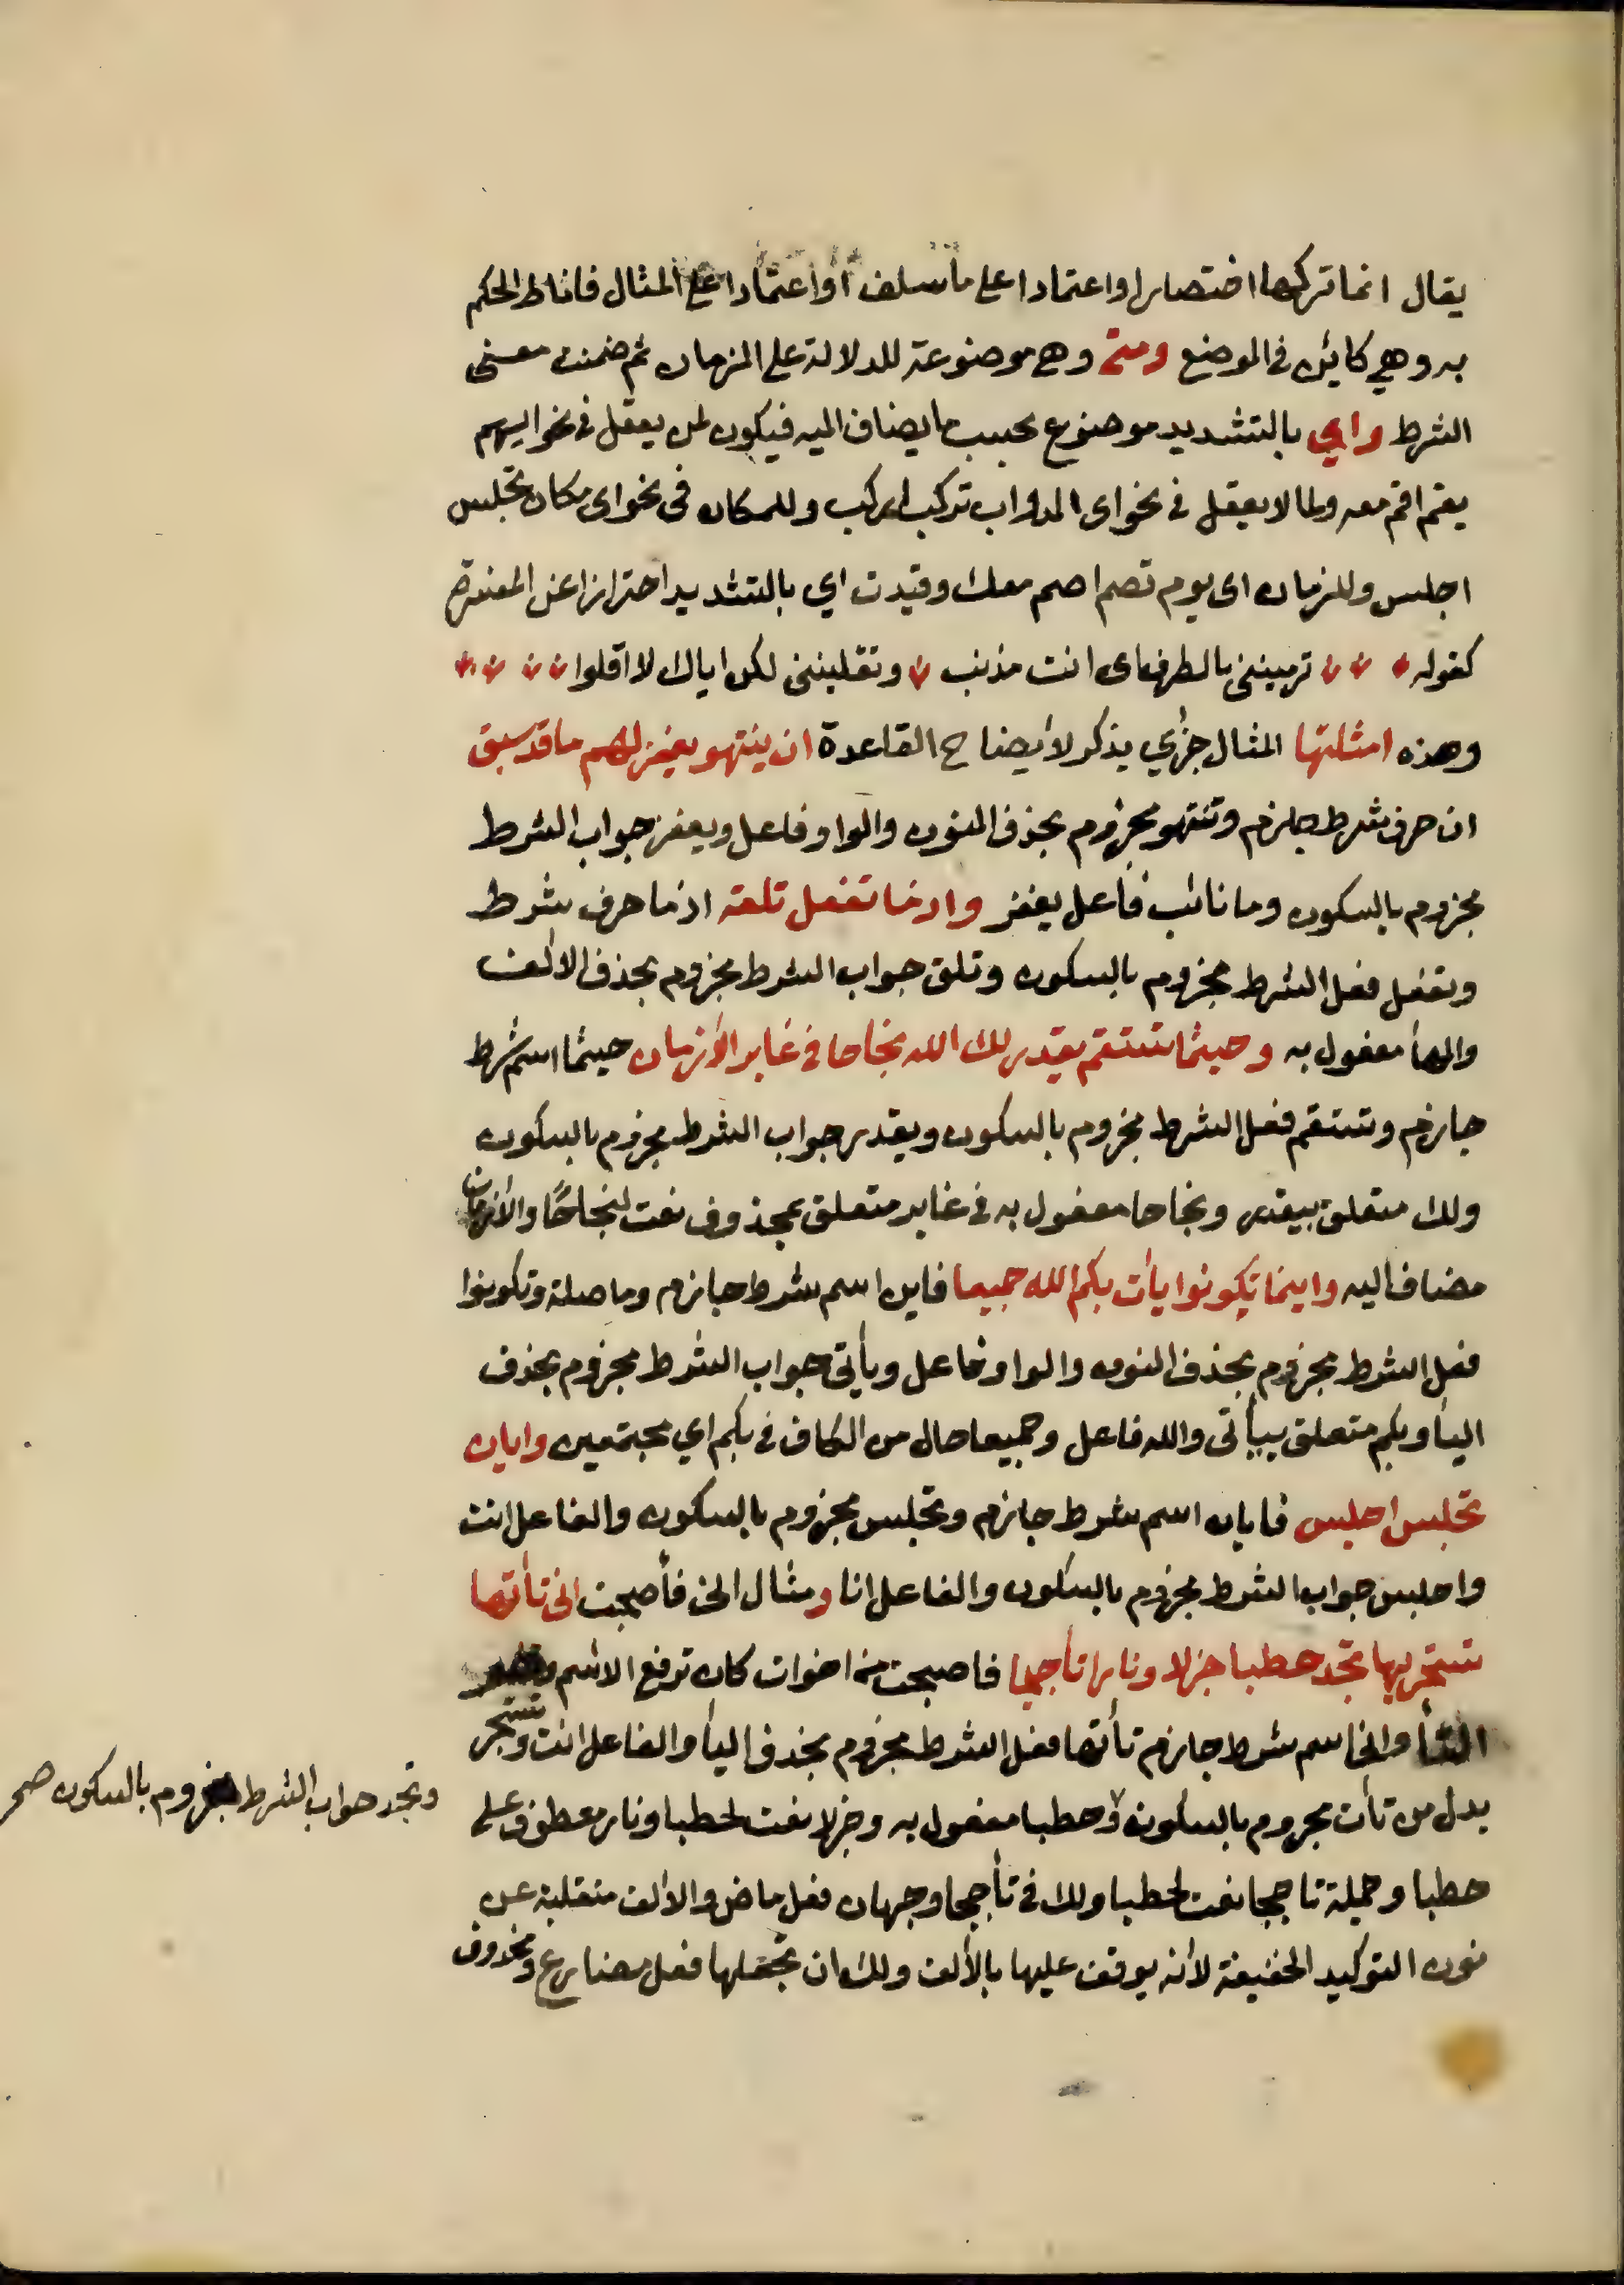 يقال انما تركها اختصارا واعتمادا على ماسلف او اعتمادا على المثال فاناط الحكم
به وهي كاين في الوضع ومتى وهي موضوعة للدلالة على الزمان ثم ضمنت معنى
الشرط واي بالتشديد موضوع بحسب ما يضاف اليه فيكون لمن يعقل في نحو ايهم
يقم اقم معه ولما لا يعقل في نحو اى الدواب تركب اركب وللمكان في نحو اى مكان تجلس
اجلس وللزمان اى يوم تصم اصم معك وقيدت اي بالتشديد احترازا عن المفتوح
كقوله ترمينني بالطرف اى انت مذنب وتقلينني لكن اياك لا اقلوا
وهذه امثلتها المثال جزئي يذكر لأيضاح القاعدة ان ينتهو يغفر لهم ما قد سبق
ان حرف شرط جازم وتنتهو مجزوم بحذف النون والواو فاعل ويغفر جواب الشرط
مجزوم بالسكون وما نائب فاعل يغفر واذما تفعل تلقه اذما حرف شرط
وتفعل فعل الشرط مجزوم بالسكون وتلق جواب الشرط مجزوم بحذف الألف
والهأ مفعول به وحيثما تستقم يقدر لك الله نجاحا في غابر الأزمان حيثما اسم شرط
جازم وتستقم فعل الشرط مجزوم بالسكون ويقدر جواب الشرط مجزوم بالسكون
ولك متعلق بيقدر ونجاحا مفعول به في غابر متعلق بمحذوف نعت لنجاحًا والأزمان
مضاف اليه واينما تكونوا يأت بكم الله جميعا فاين اسم شرط جازم وما صلة وتكونوا
فعل الشرط مجزوم بحذف النون والواو فاعل ويأتي جواب الشرط مجزوم بحذف
اليأ وبكم متعلق بيأتى والله فاعل وجميعا حال من الكاف في بكم اي مجتمعين وايان
تجلس اجلس فايان اسم شرط جازم وتجلس مجزوم بالسكون والفاعل انت
واجلس جواب الشرط مجزوم بالسكون والفاعل انا ومثال انى فأصبحت انى تأتها
تستجر بها تجد حطبا جزلا ونارا تأججا فاصبحت من اخوات كان ترفع الاسم
التأ وانى اسم شرط جازم تأتها فعل الشرط مجزوم بحذف اليأ والفاعل انت وتستجر
بدل من تأت مجزوم بالسكون وحطبا مفعول به وجزلا نعت لحطبا ونار معطوف على
وتجد جواب الشرط مجزوم بالسكون صح
حطبا وجملة تاججا نعت لحطبا ولك في تأججا وجهان فعل ماض والألف منقلبة عن
نون التوكيد الخفيفة لأنه يوقف عليها بالألف ولك ان تجعلها فعل مضارع ومحذوف